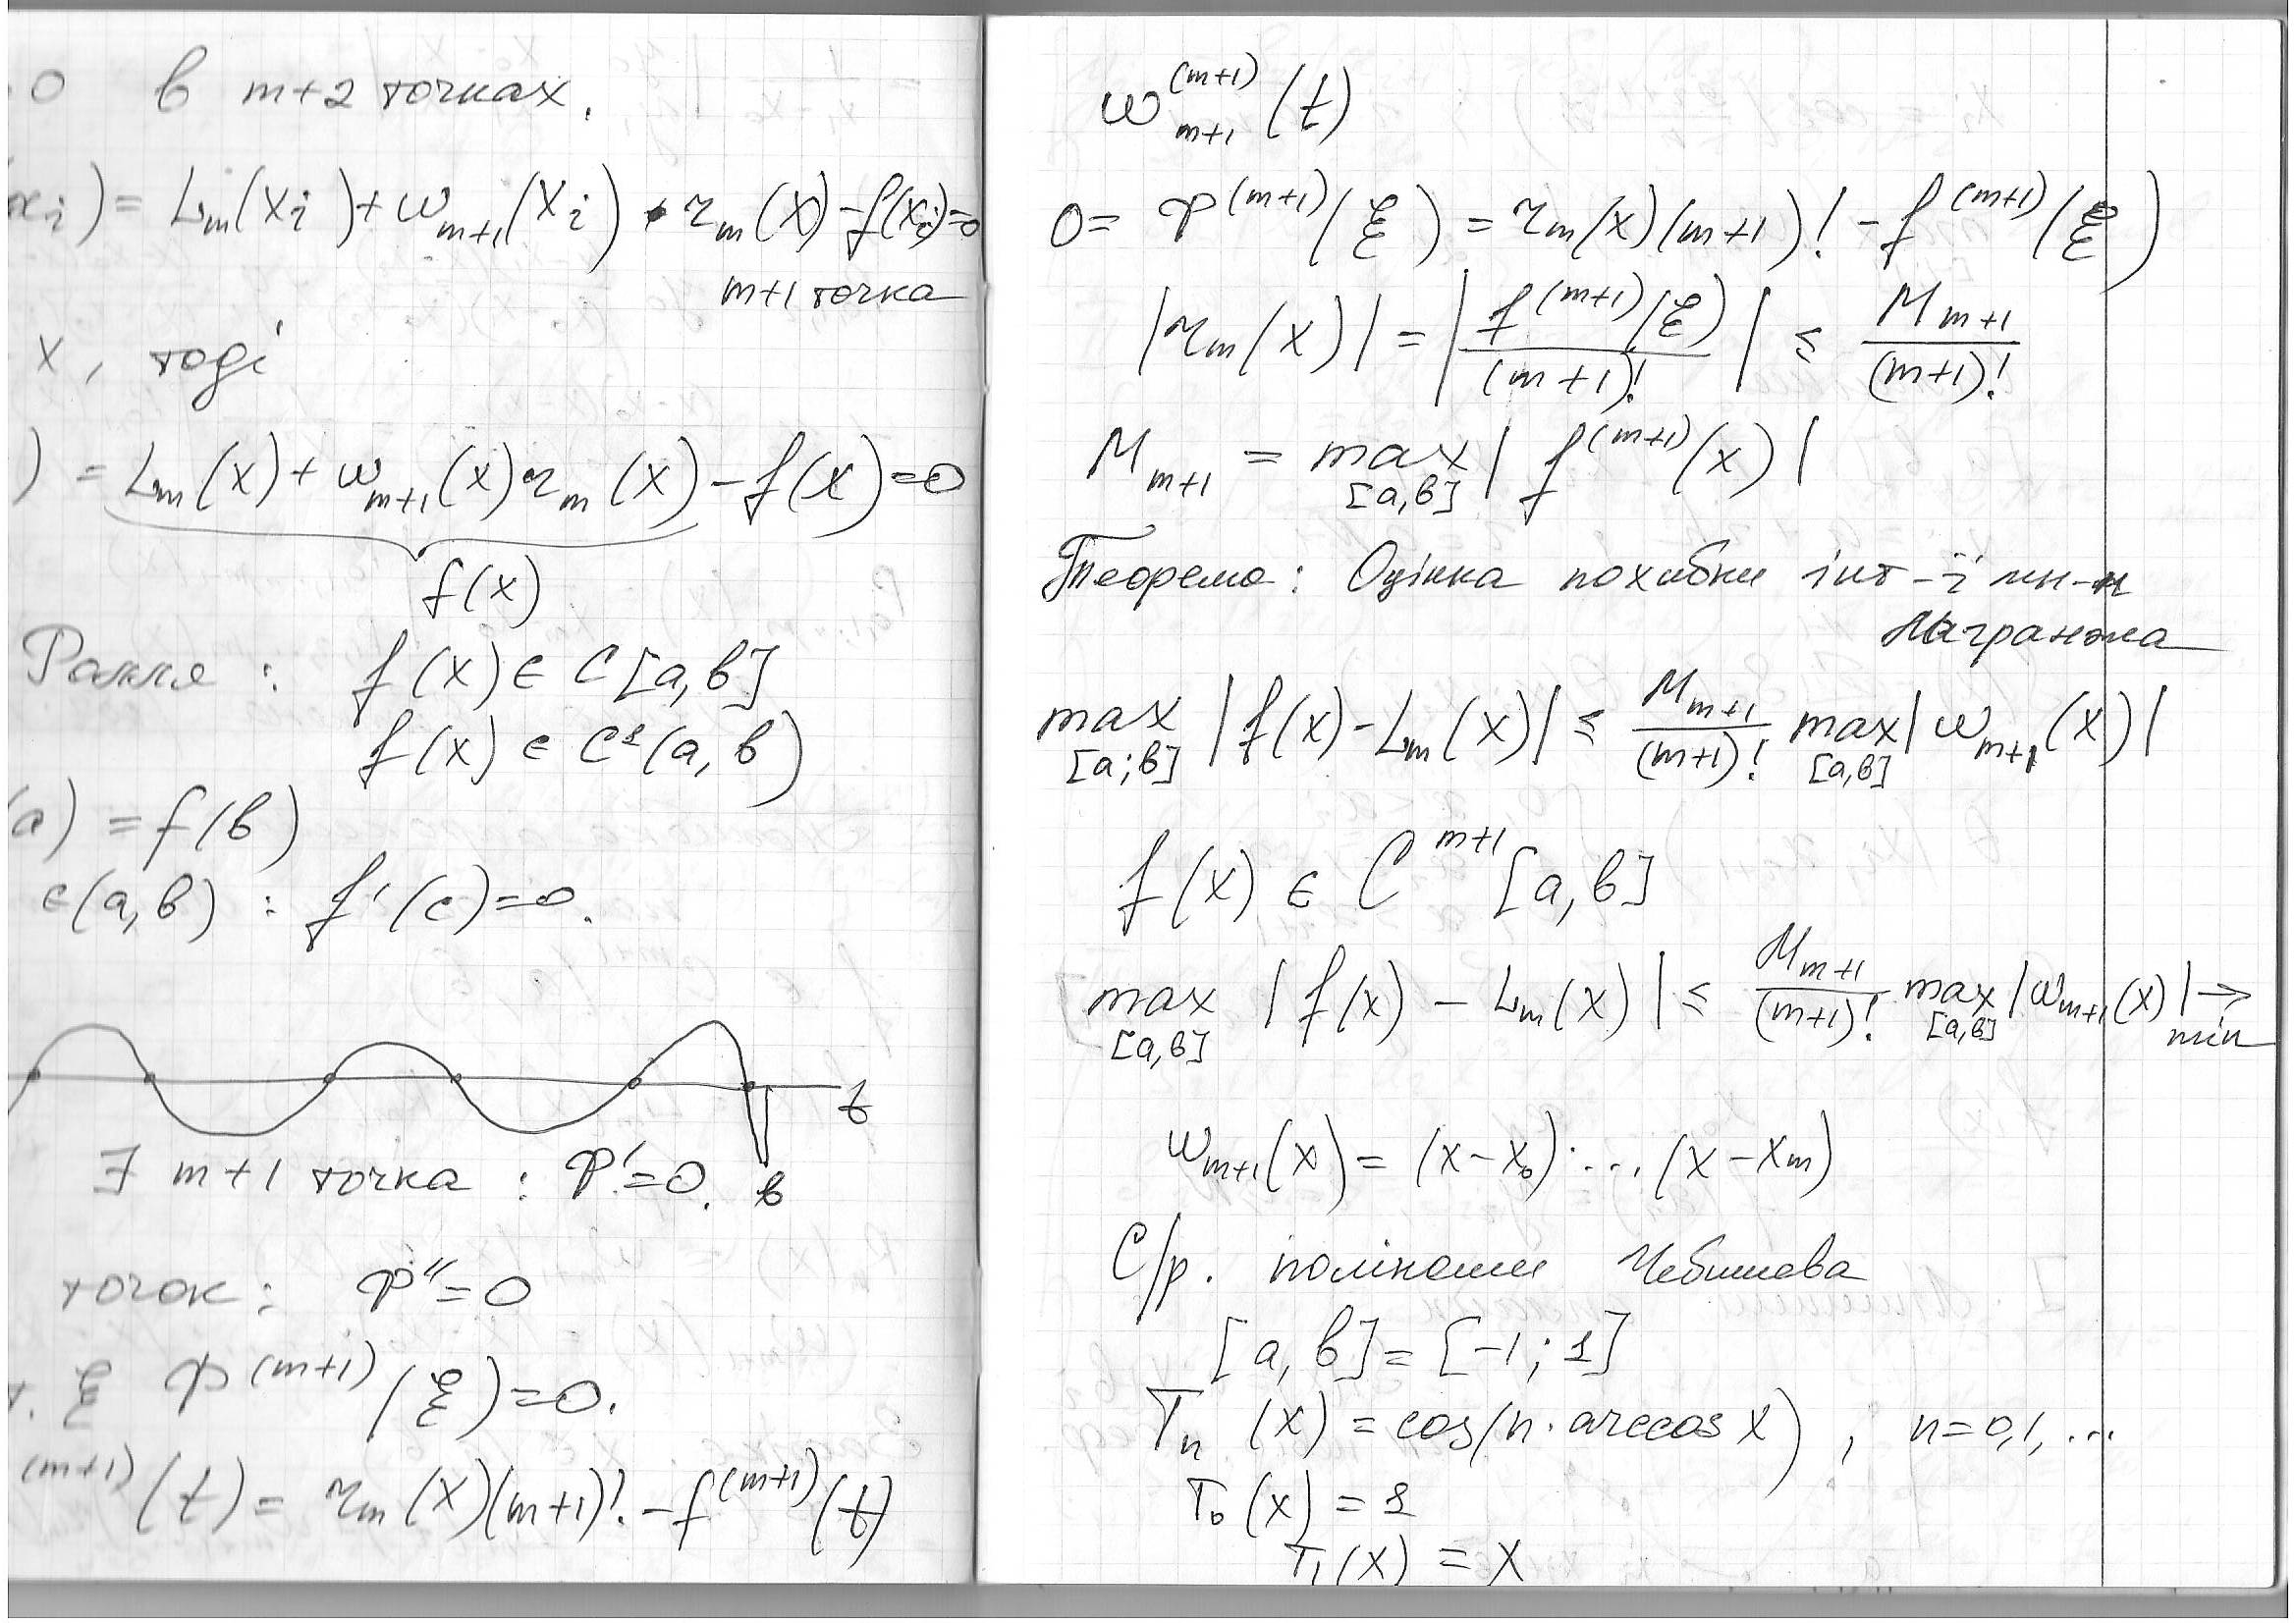 0 в m+2 точках.
xi) = Lm(xi) + ωm+1(xi) · rm(x) - f(xi) = 0
m+1 точка
x, тоді
) = Lm(x) + ωm+1(x) rm(x) - f(x) = 0
f(x)
Ролля : f(x) ∈ C[a,b]
f(x) ∈ C¹(a,b)
(a) = f(b)
c(a,b) : f'(c)=0.
t
∃ m+1 точка : φ'=0. b
точок : φ''=0
т. ξ φ^(m+1)(ξ)=0.
^(m+1)(t) = rm(x)(m+1)! - f^(m+1)(t)
ω^(m+1)m+1(t)
0 = φ^(m+1)(ξ) = rm(x)(m+1)! - f^(m+1)(ξ)
|rm(x)| = |f^(m+1)(ξ)/(m+1)!| ≤ Mm+1/(m+1)!
Mm+1 = max[a,b] |f^(m+1)(x)|
Теорема : Оцінка похибки інт-ї мн-м
Лагранжа
max[a;b] |f(x)-Lm(x)| ≤ Mm+1/(m+1)! max[a,b] |ωm+1(x)|
f(x) ∈ C^m+1[a,b]
max[a,b] |f(x) - Lm(x)| ≤ Mm+1/(m+1)! max[a,b] |ωm+1(x)| → min
ωm+1(x) = (x-x0)·...(x-xm)
С/р. поліноми Чебишева
[a,b] = [-1;1]
Tn(x) = cos(n·arccos x), n=0,1,...
T0(x) = 1
T1(x) = x